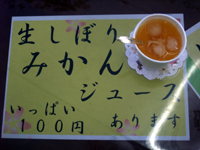 生しぼり
みかん
ジュース
いっぱい
100円 あります